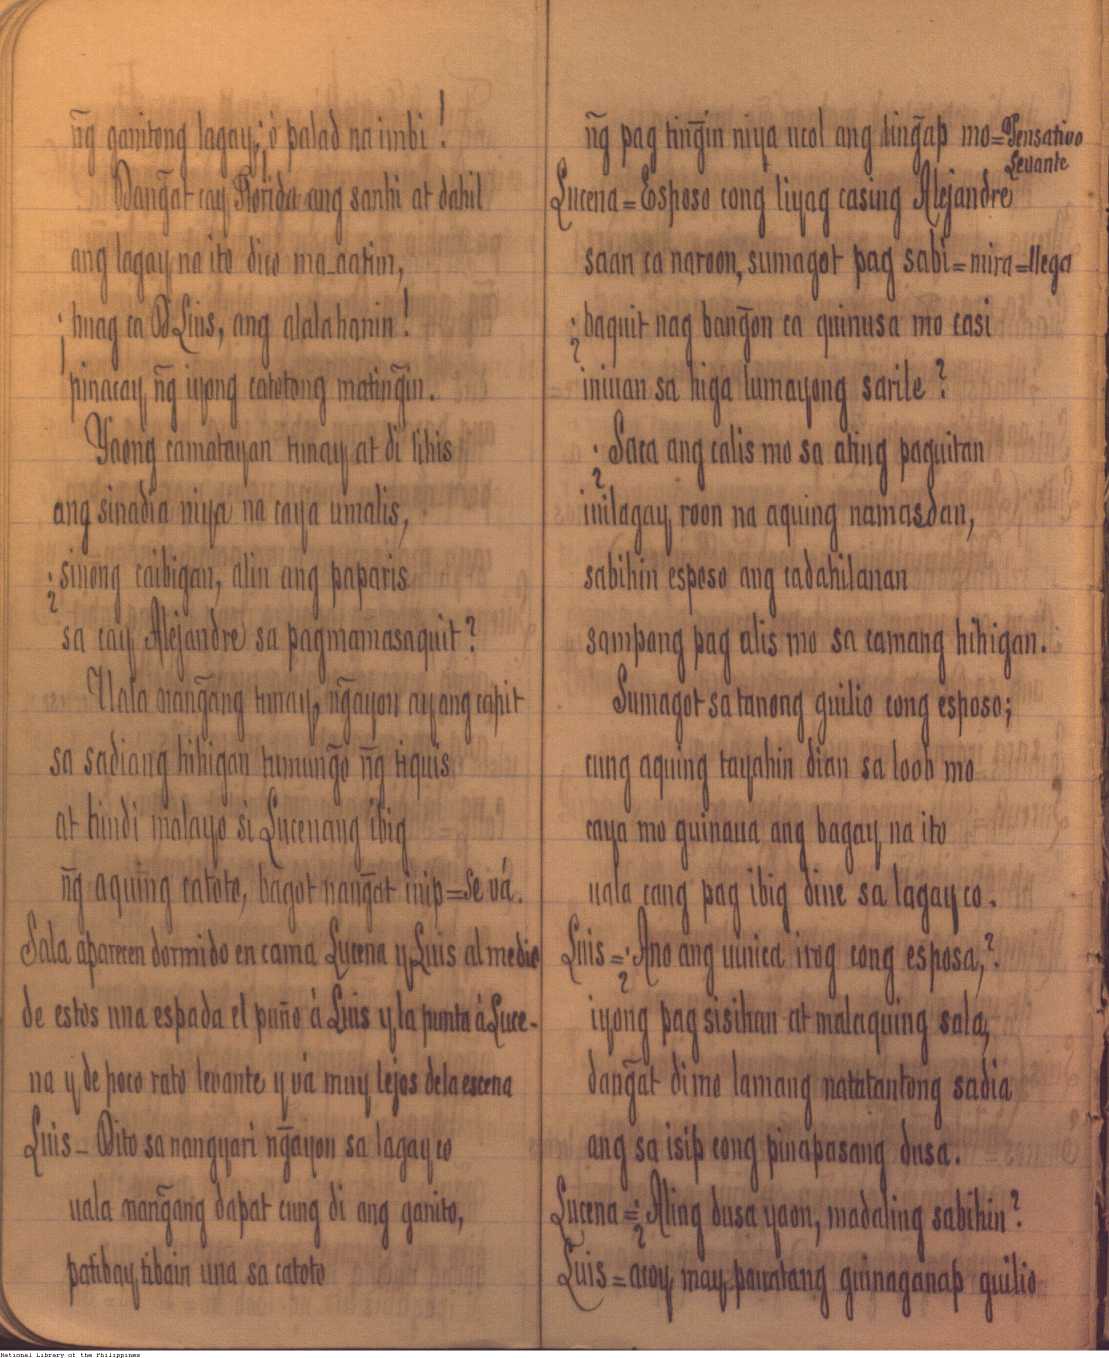 n͠g ganitong lagay; ¡ó palad na imbi!
Dang̃at cay Florida ang sanhi at dahil
ang lagay na ito dico ma-aatim,
¡huag ca D Luis, ang alalahanin!
pinacay n͠g iyong catotong mating̃in.
Yaong camatayan tunay at di lihis
ang sinadia niya na caya umalis,
¿sinong caibigan, alin ang paparis
sa cay Alejandre sa pagmamasaquit?
Uala nang̃ang tunay, ng̃ayon ay ang capit
sa sadiang hihigan tumung̃o n͠g tiquis
at hindi malayo si Lucenang ibig
n͠g aquing catoto, bagot nang̃at inip=Se vá.
Sala aparecen dormido en cama Lucena y Luis al medio
de estos una espada el puño á Luis y la punta á Luce-
na y de poco rato levante y vá muy lejos de la escena
Luis- Dito sa nangyari ng̃ayon sa lagay co
uala nang̃ang dapat cung di ang ganito,
patibay tibain una sa catoto
n͠g pag ting̃in niya ucol ang ling̃ap mo=Pensativo
Levante
Lucena=Esposo cong liyag casing Alejandre
saan ca naroon, sumagot pag sabi=mira=llega
¿baquit nag bang̃on ca quinusa mo casi
iniuan sa higa lumayong sarile?
¿Saca ang calis mo sa ating paguitan
inilagay roon na aquing namasdan,
sabihin esposo ang cadahilanan
sampong pag alis mo sa camang hihigan.
Sumagot sa tanong guilio cong esposo;
cung aquing tayahin dian sa loob mo
caya mo guinaua ang bagay na ito
uala cang pag ibig dine sa lagay co.
Luis=¿Ano ang uinica irog cong esposa,?
iyong pag sisihan at malaquing sala,
dang̃at di mo lamang natatantong sadia
ang sa isip cong pinapasang dusa.
Lucena=¿Aling dusa yaon, madaling sabihin?
Luis=acoy may panatang guinaganap guilio
National Library of the Philippines